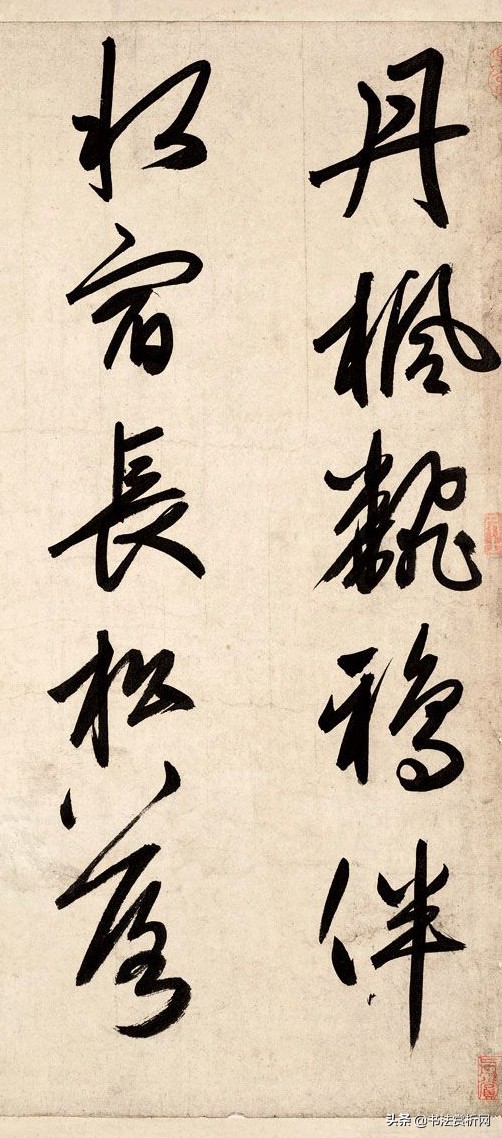 丹楓飜鴉伴
水宿長松落
头条 @书法赏析网